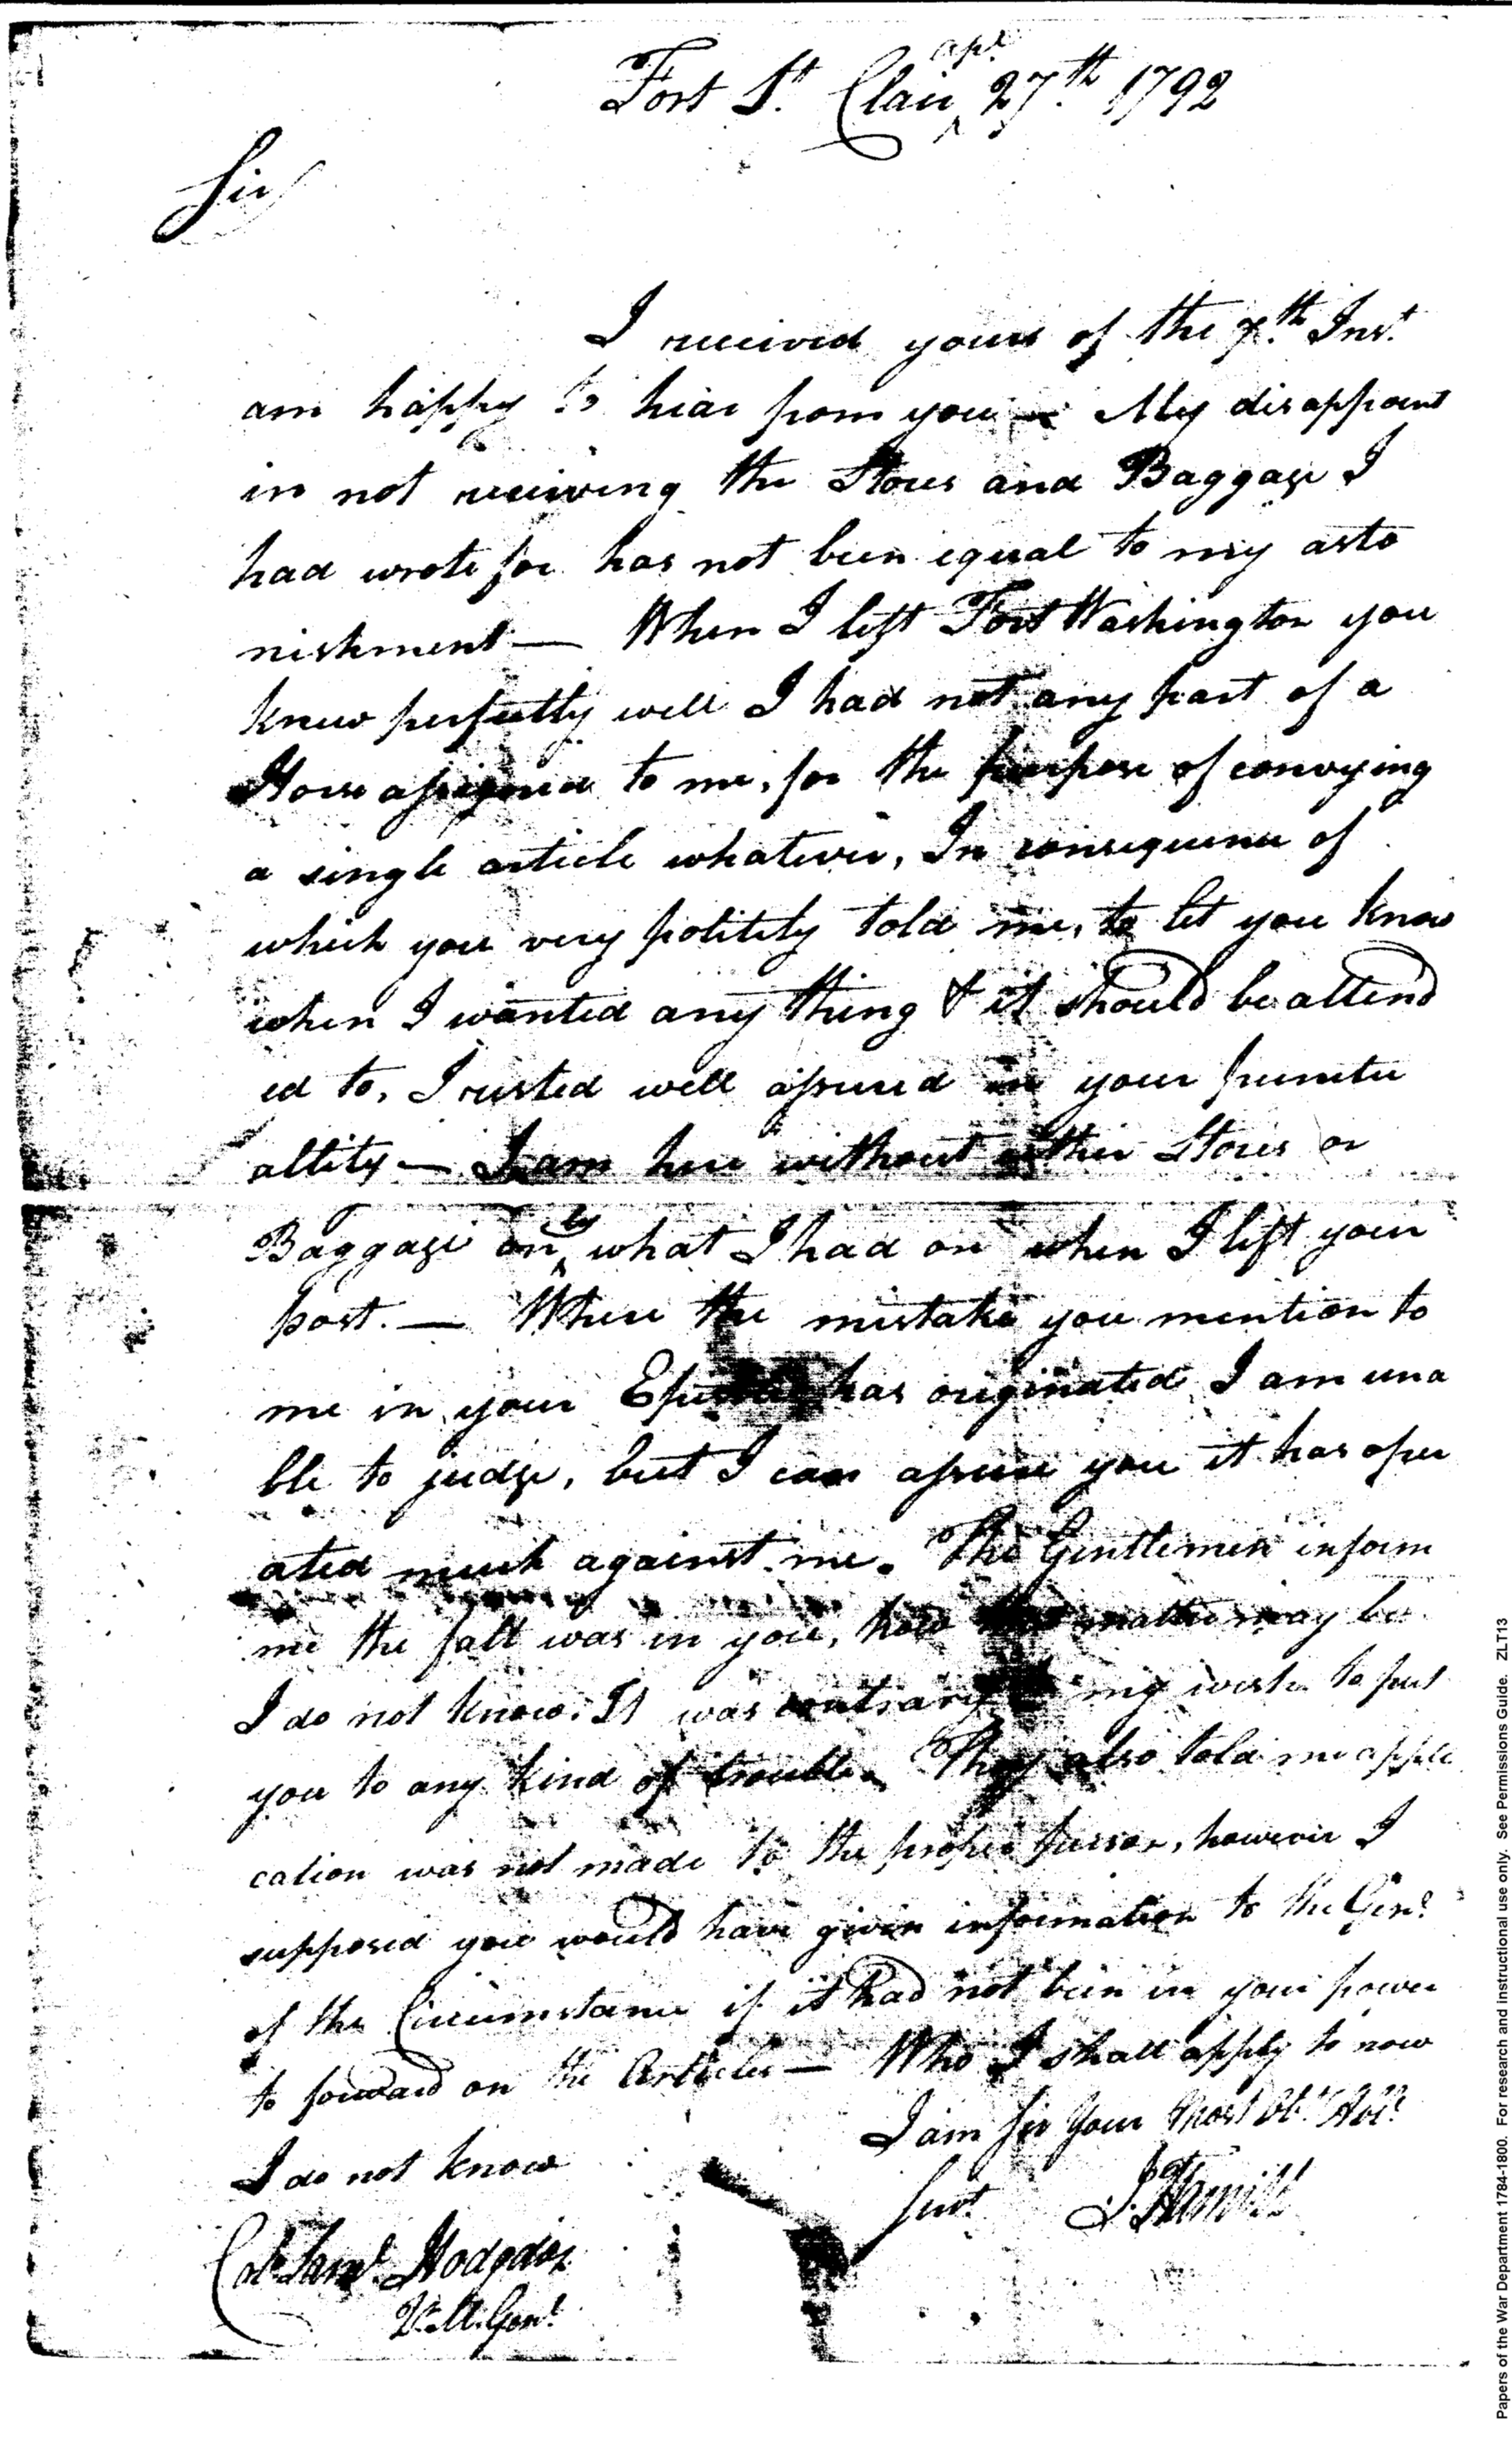 Fort St. Clair apl. 27th 1792
Sir
I received yours of the 7th Inst.
am happy to hear from you — My disappoint
in not receiving the Stores and Baggage I
had wrote for has not been equal to my asto
nishment — When I left Fort Washington you
knew perfectly well I had not any part of a
Horse assigned to me, for the purpose of conveying
a single article whatever, In consequence of
which you very politely told me, to let you know
when I wanted any thing & it should be attend
ed to, I rested well assured in your punctu
allity — I am here without either Stores or
Baggage only what I had on when I left your
post. — Where the mistake you mention to
me in your Epistle has originated I am una
ble to judge, but I can assure you it has oper
ated much against me. The Gentlemen inform
me the falt was in you, how the matter may be
I do not know. It was contrary to my wish to put
you to any kind of trouble. They also told me appli
cation was not made to the proper person, however I
supposed you would have given information to the Genl.
of the Circumstance if it had not been in your power
to forward on the Articles — Who I shall apply to now
I do not know
I am Sir Your Most Obt. Hble.
Servt.
Col. Saml. Hodgdon
Q. M. Genl.
Papers of the War Department 1784-1800. For research and instructional use only. See Permissions Guide. ZLT13